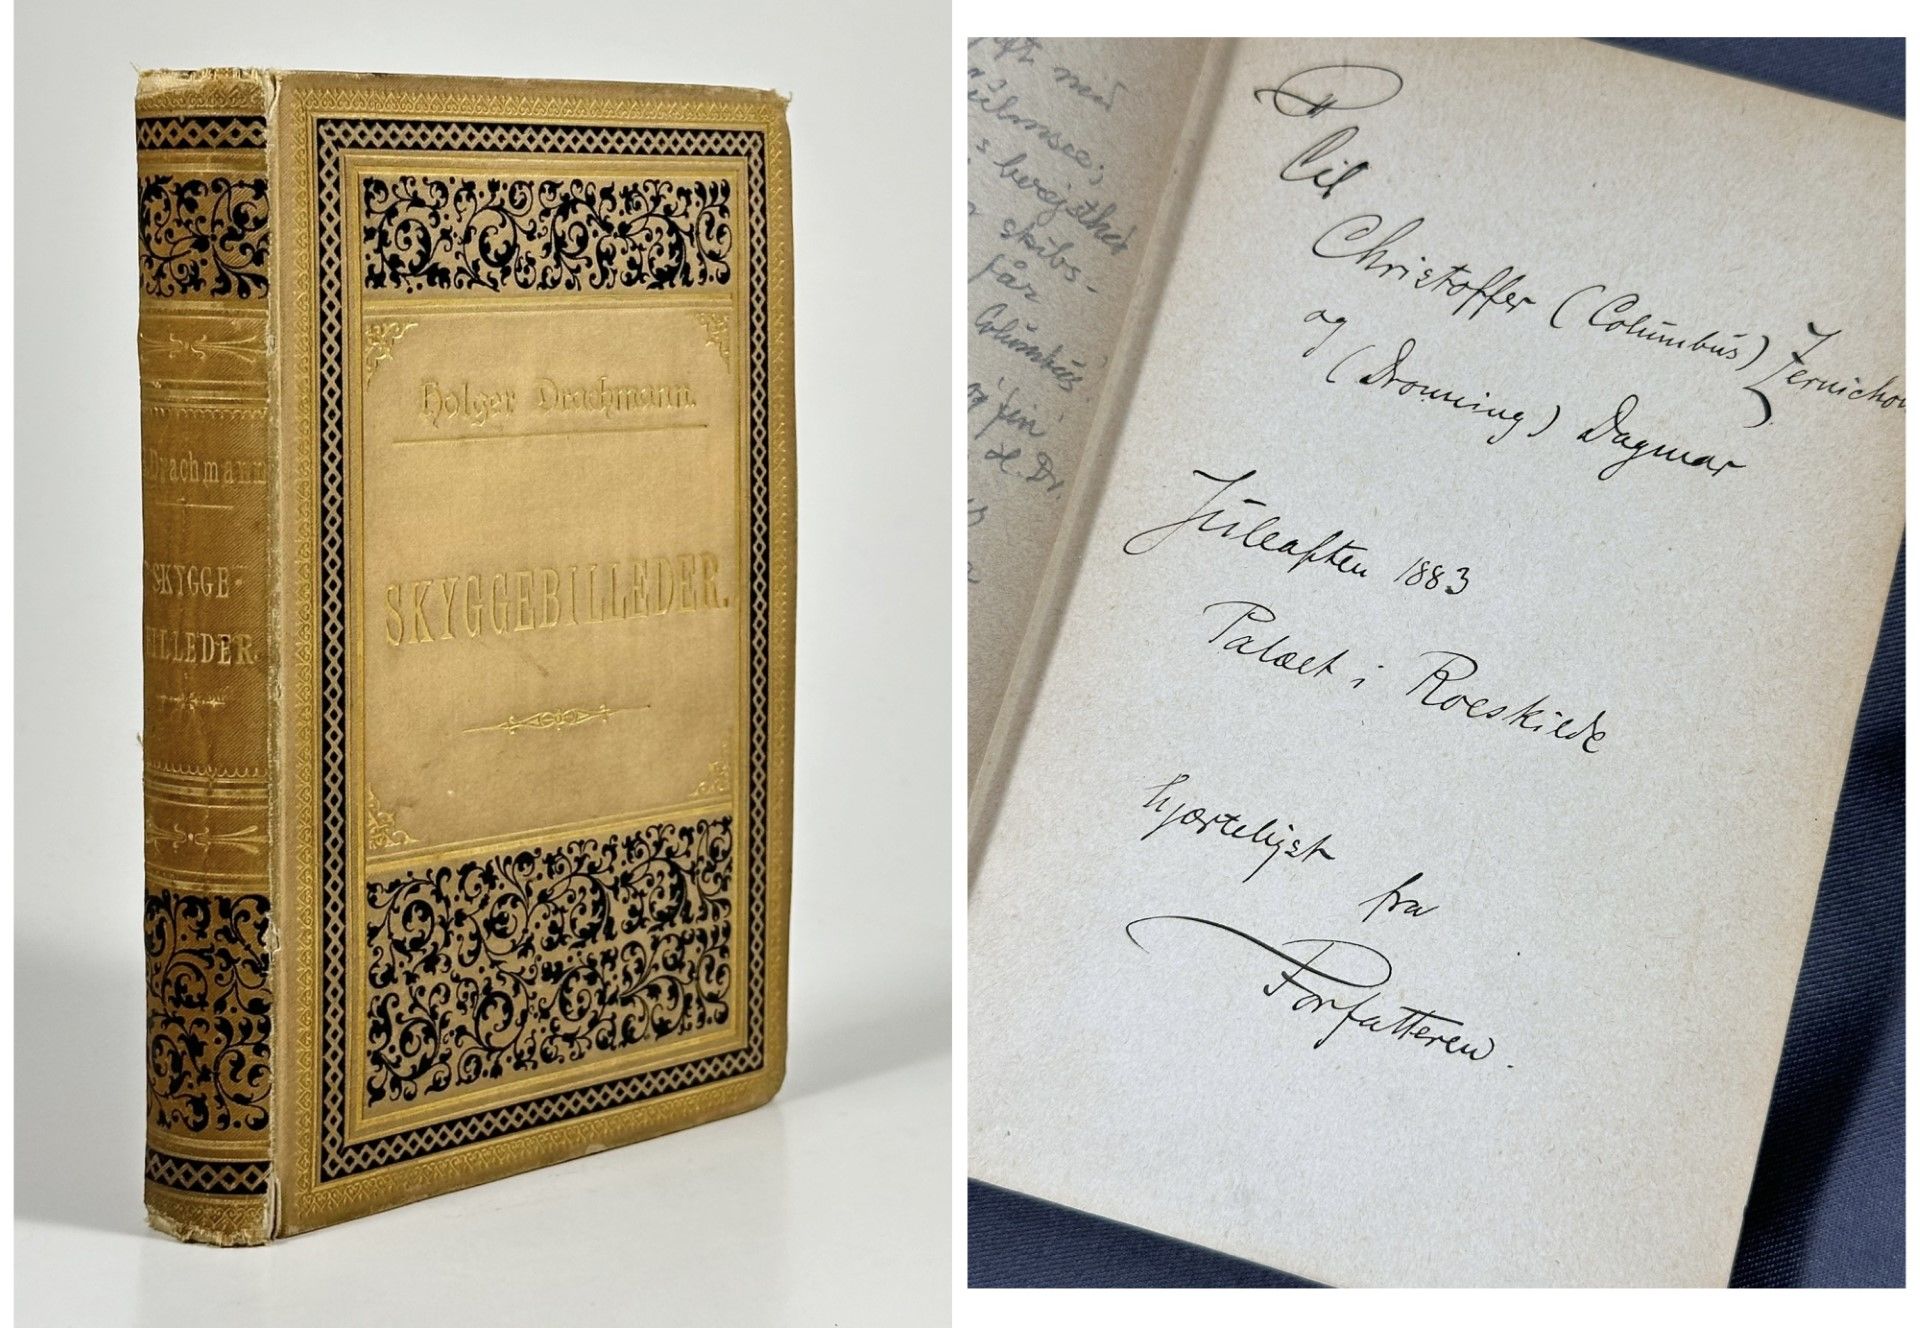 Drachmann
SKYGGE-
BILLEDER.
Holger Drachmann.
SKYGGEBILLEDER.
bergsthet
skibs-
får
Columbus
og fin
H. Dr.
Til
Christoffer (Columbus) Zernichow
og
(Dronning) Dagmar
Juleaften 1883
Palæet i Roeskilde
hjærteligst
fra
Forfatteren.